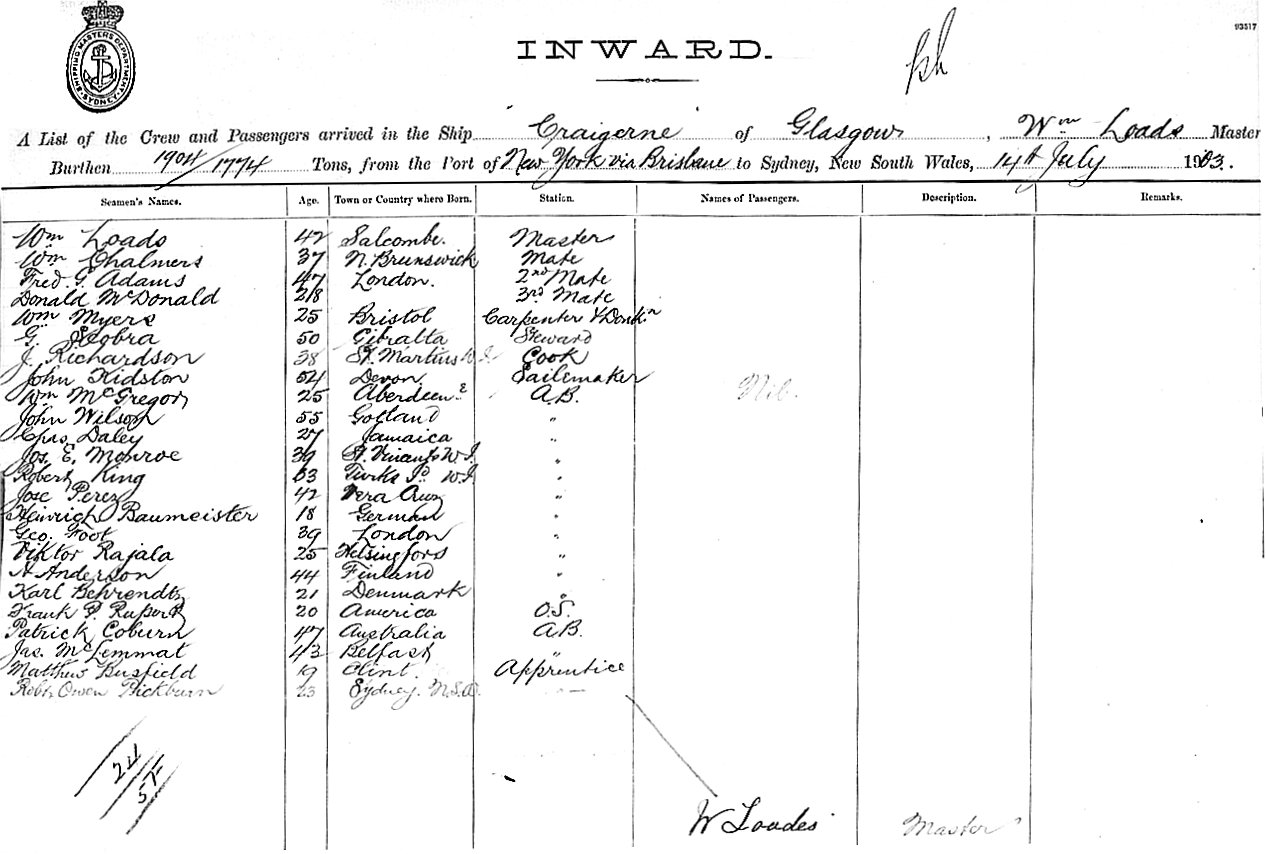 93517
SHIPPING MASTERS DEPARTMENT SYDNEY
INWARD.
A List of the Crew and Passengers arrived in the Ship "Craigerne" of Glasgow, Wm Loads Master
Burthen 1904/1774 Tons, from the Port of New York via Brisbane to Sydney, New South Wales, 14th July 1903.
Seamen's Names. Age. Town or Country where Born. Station. Names of Passengers. Description. Remarks.
Wm Loads 42 Salcombe. Master
Wm Chalmers 37 N. Brunswick Mate
Fred. G. Adams 47 London. 2nd Mate
Donald McDonald 3rd Mate
Wm Myers 25 Bristol Carpenter &
G. 50 Gibralta Steward
J. Richardson 38 St. Martins W.I. Cook
John Kidston 54 Devon Sailemaker
Wm McGregor 25 Aberdeen A.B. Nil.
John Wilson 55 Gotland "
Chas. Daley 27 Jamaica "
Jos. E. Monroe 39 St. Vincents W.I. "
Robert King Turks Is. W.I. "
Jose Perez 42 Vera Cruz "
Heinrich Baumeister 18 German "
Geo. Foot 39 London "
Viktor Rajala 25 Helsingfors "
A Anderson 44 Finland "
Karl Behrendtz 21 Denmark "
Frank P. Rupert 20 America O.S.
Patrick Coburn 47 Australia A.B.
Jas. McLemmat 43 Belfast "
Matthew Busfield 19 Clint. Apprentice
Robt. Owen Pickburn 23 Sydney. N.S.W. —
24
57
W Loades Master